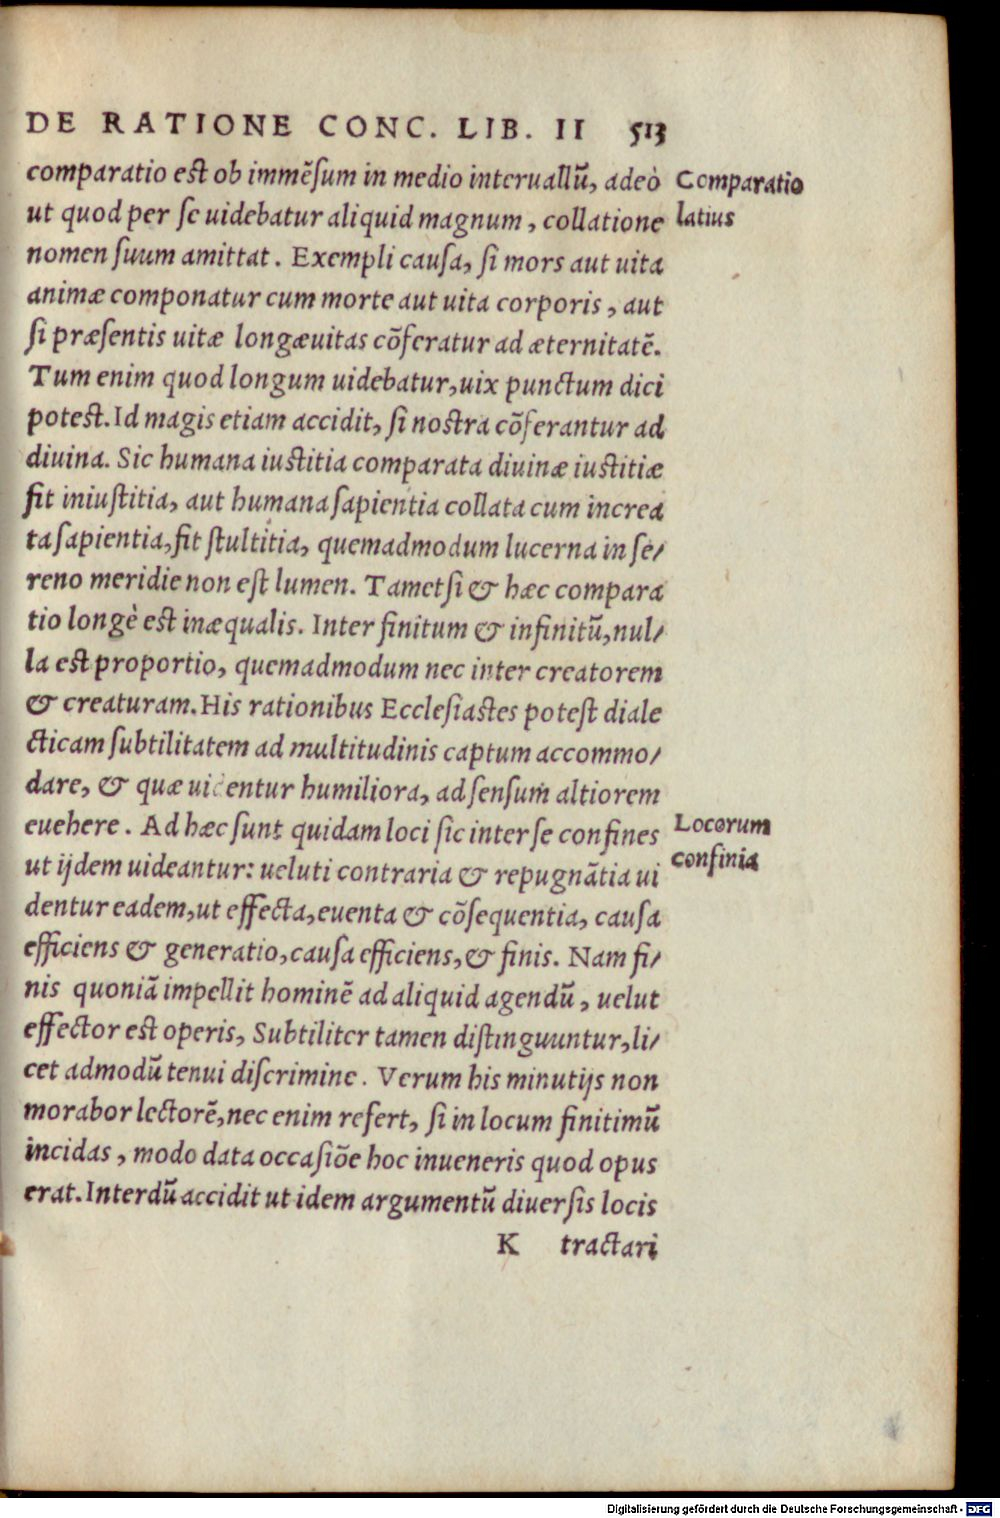 DE RATIONE CONC. LIB. II 513
comparatio est ob immẽsum in medio interuallũ, adeò
Comparatio
ut quod per se uidebatur aliquid magnum, collatione
latius
nomen suum amittat. Exempli causa, si mors aut uita
animæ componatur cum morte aut uita corporis, aut
si præsentis uitæ longæuitas cõferatur ad æternitatẽ.
Tum enim quod longum uidebatur, uix punctum dici
potest. Id magis etiam accidit, si nostra cõferantur ad
diuina. Sic humana iustitia comparata diuinæ iustitiæ
fit iniustitia, aut humana sapientia collata cum increa
ta sapientia, fit stultitia, quemadmodum lucerna in se/
reno meridie non est lumen. Tametsi & hæc compara
tio longè est inæqualis. Inter finitum & infinitũ, nul/
la est proportio, quemadmodum nec inter creatorem
& creaturam. His rationibus Ecclesiastes potest diale
cticam subtilitatem ad multitudinis captum accommo/
dare, & quæ uidentur humiliora, ad sensum altiorem
euehere. Ad hæc sunt quidam loci sic inter se confines
Locorum
ut ijdem uideantur: ueluti contraria & repugnãtia ui
confinia
dentur eadem, ut effecta, euenta & cõsequentia, causa
efficiens & generatio, causa efficiens, & finis. Nam fi/
nis quoniã impellit hominẽ ad aliquid agendũ, uelut
effector est operis, Subtiliter tamen distinguuntur, li/
cet admodũ tenui discrimine. Verum his minutijs non
morabor lectorẽ, nec enim refert, si in locum finitimũ
incidas, modo data occasiõe hoc inueneris quod opus
erat. Interdũ accidit ut idem argumentũ diuersis locis
K tractari
Digitalisierung gefördert durch die Deutsche Forschungsgemeinschaft - DFG